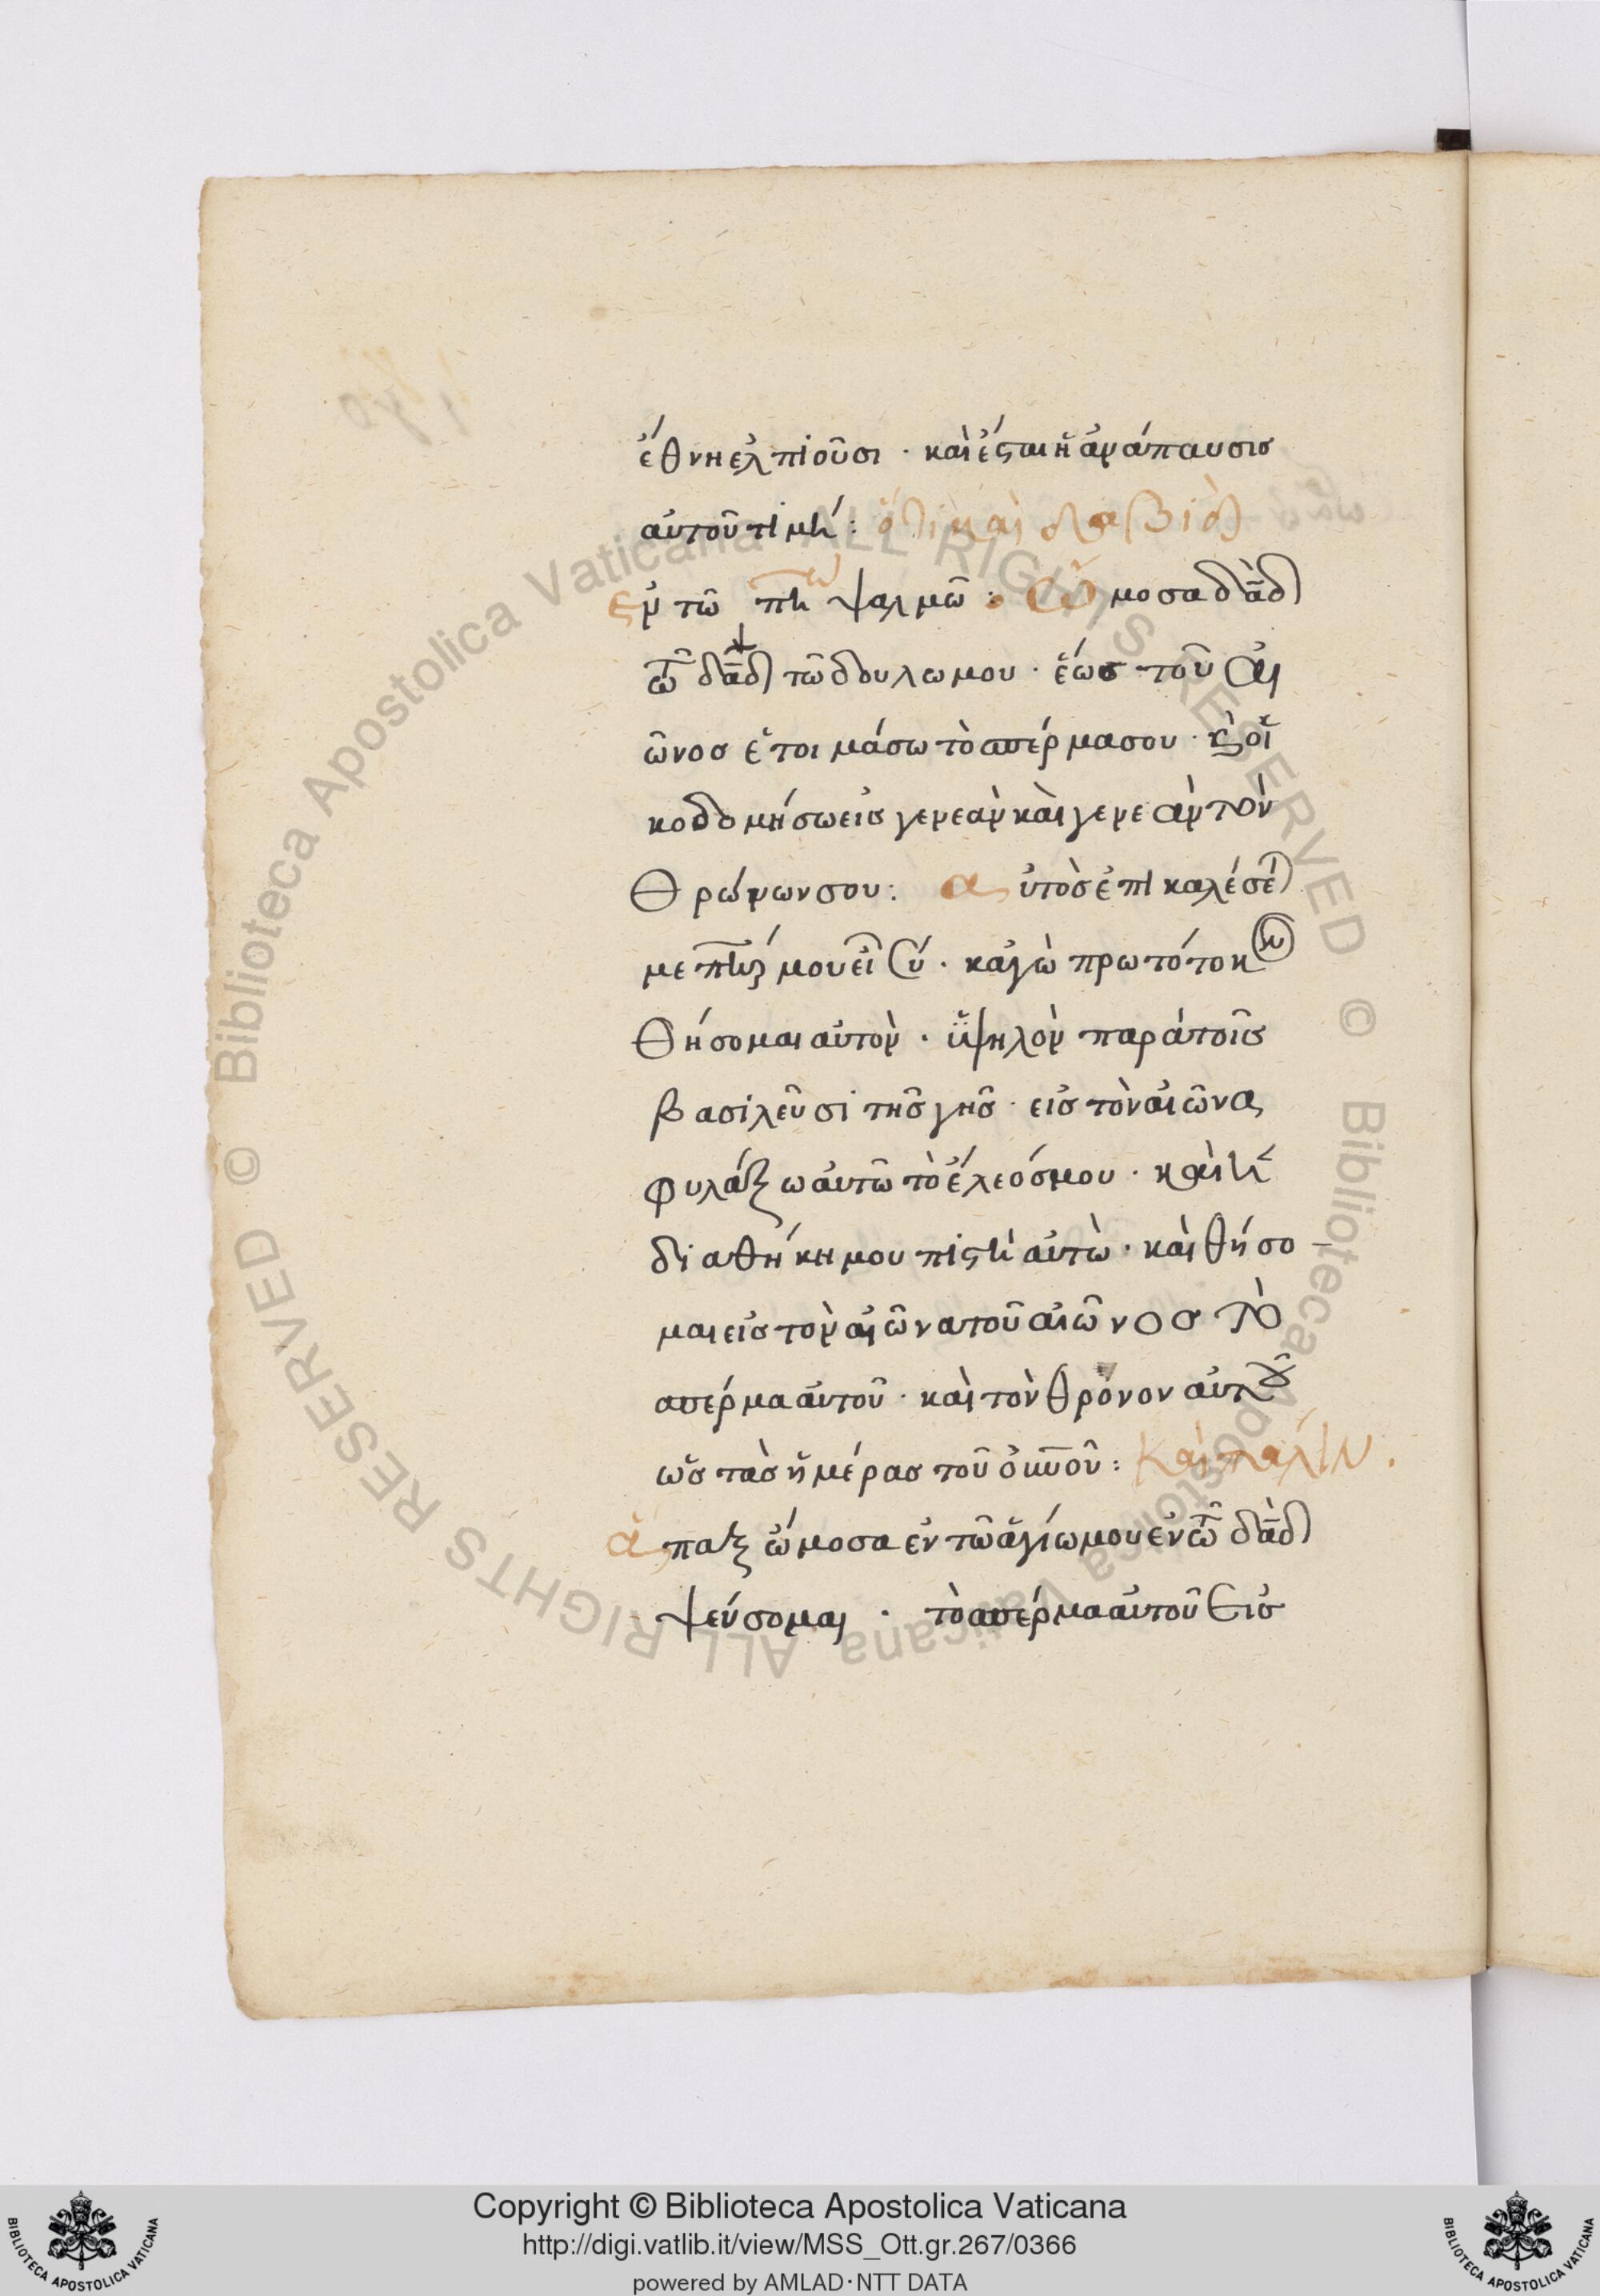 ἔθνη ἐλπιοῦσι · καὶ ἔσται ἡ ἀνάπαυσις
αὐτοῦ τιμή : ὅτι καὶ δαβὶδ
ἐν τῶ πη ψαλμῶ : Ὤμοσα δᾱδ
τῶ δᾱδ τῶ δουλω μου · ἕως τοῦ αἰ
ῶνος ἑτοιμάσω τὸ σπέρμα σου · κ οἰ
κοδομήσω εἰς γενεὰν καὶ γενεὰν τὸν
θρώνων σου : αὐτὸς ἐπικαλέσε
με πηρ μου εἶ σύ · καγὼ πρωτότοκον
θήσομαι αὐτὸν · ὑψηλὸν παρὰ τοῖς
βασιλεῦσι τῆς γῆς · εἰς τὸν αἰῶνα
φυλάξω αὐτῶ τὸ ἔλεός μου · καὶ ἡ
διαθήκη μου πιστὴ αὐτὼ · καὶ θήσο
μαι εἰς τὸν αἰῶνα τοῦ αἰῶνος τὸ
σπέρμα αὐτοῦ · καὶ τὸν θρόνον αὐτοῦ
ὡς τὰς ἡμέρας τοῦ οὐνοῦ : Καὶ πάλιν .
ἅπαξ ὤμοσα ἐν τῶ ἁγίω μου ἐν τῶ δᾱδ
ψεύσομαι · τὸ σπέρμα αὐτοῦ εἰς
Copyright © Biblioteca Apostolica Vaticana
http://digi.vatlib.it/view/MSS_Ott.gr.267/0366
powered by AMLAD·NTT DATA
BIBLIOTECA APOSTOLICA VATICANA
BIBLIOTECA APOSTOLICA VATICANA
© Biblioteca Apostolica Vaticana ALL RIGHTS RESERVED © Biblioteca Apostolica Vaticana ALL RIGHTS RESERVED